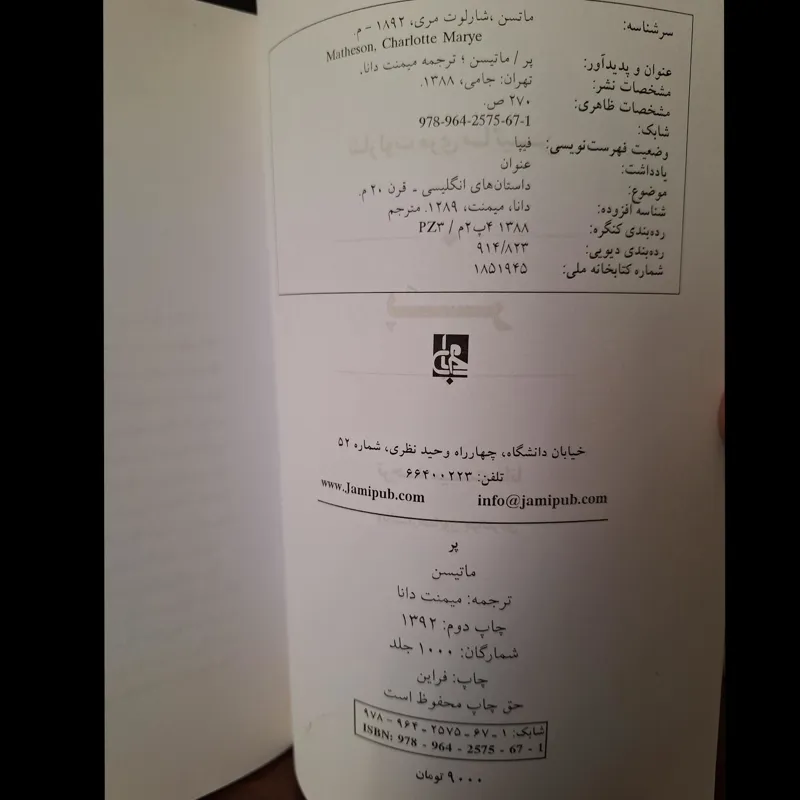 سرشناسه: ماتسن، شارلوت مری، ۱۸۹۲ - م.
Matheson, Charlotte Marye
عنوان و پدیدآور: پر / ماتیسن ؛ ترجمه میمنت دانا.
مشخصات نشر: تهران: جامی، ۱۳۸۸.
مشخصات ظاهری: ۲۷۰ ص.
شابک: 978-964-2575-67-1
وضعیت فهرست‌نویسی: فیپا
یادداشت: عنوان
موضوع: داستان‌های انگلیسی - قرن ۲۰ م.
شناسه افزوده: دانا، میمنت، ۱۲۸۹. مترجم
رده‌بندی کنگره: ۱۳۸۸ ۴پ۲م / PZ۳
رده‌بندی دیویی: ۹۱۴/۸۲۳
شماره کتابخانه ملی: ۱۸۵۱۹۴۵
خیابان دانشگاه، چهارراه وحید نظری، شماره ۵۲
تلفن: ۶۶۴۰۰۲۲۳
www.Jamipub.com info@jamipub.com
پر
ماتیسن
ترجمه: میمنت دانا
چاپ دوم: ۱۳۹۲
شمارگان: ۱۰۰۰ جلد
چاپ: فراین
حق چاپ محفوظ است
شابک: ۱ - ۶۷ - ۲۵۷۵ - ۹۶۴ - ۹۷۸
ISBN: 978 - 964 - 2575 - 67 - 1
۹۰۰۰ تومان